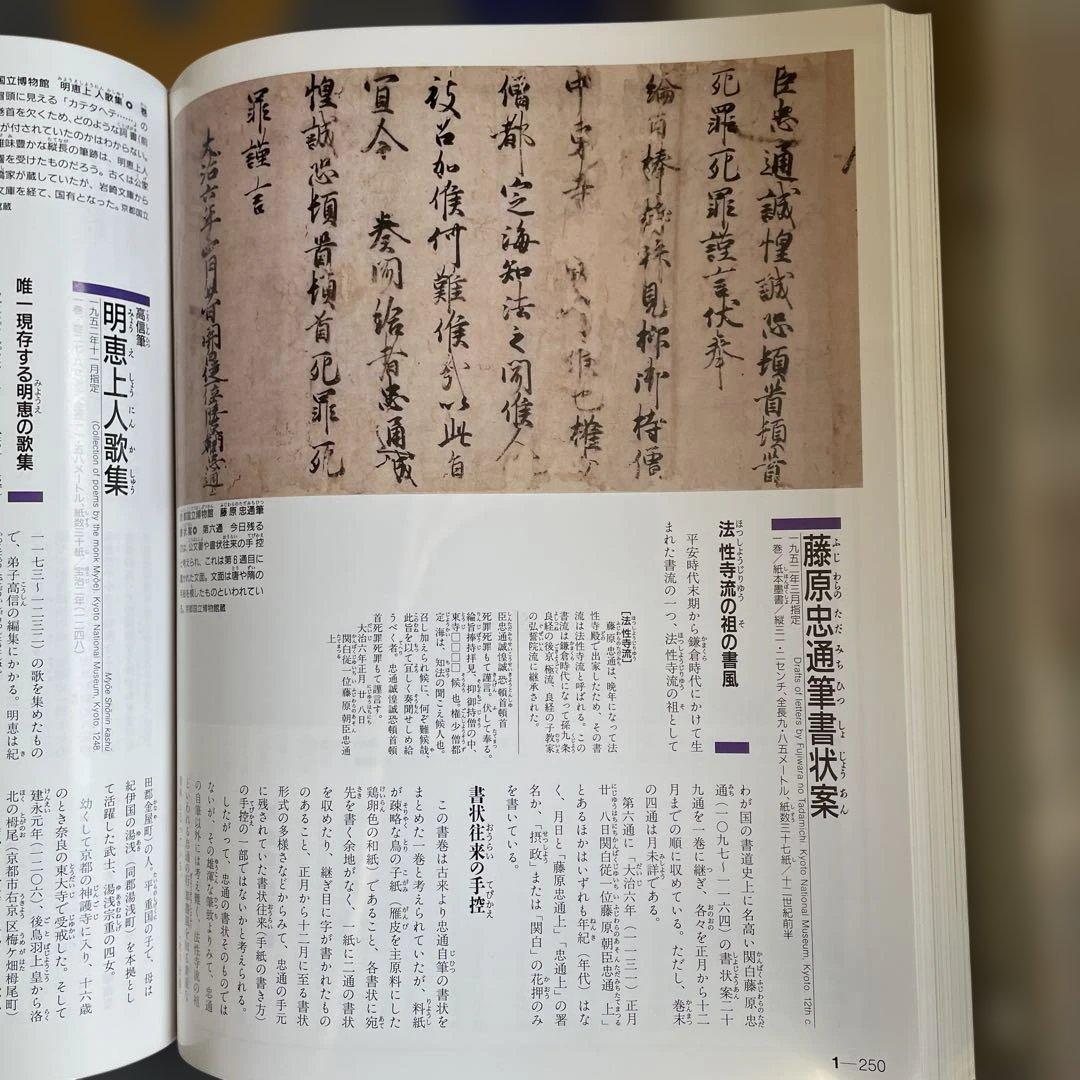 臣忠通誠惶誠恐頓首頓首
死罪死罪謹言伏奉
綸旨捧持拝見抑御持僧
中東寺
僧都定海知法之聞候人
被召加候何難候哉以此旨
宜令　奏聞給者忠通誠
惶誠恐頓首頓首死罪死
罪謹言
藤原忠通筆書状案
ふじわらのただみちひつしょじょうあん
Drafts of letters by Fujiwara no Tadamichi. Kyoto National Museum, Kyoto. 12th c.
一九五二年三月指定
一巻／紙本墨書／縦三一・二センチ、全長九・八五メートル、紙数三十七紙／十二世紀前半
法性寺流の祖の書風
ほっしょうじりゅう　そ
平安時代末期から鎌倉時代にかけて生
まれた書流の一つ、法性寺流の祖として
わが国の書道史上に名高い関白藤原忠
通（一〇九七～一一六四）の書状案二十
九通を一巻に継ぎ、各々を正月から十二
月までの順に収めている。ただし、巻末
の四通は月未詳である。
第六通に「大治六年（一一三一）正月
廿八日関白従一位藤原朝臣忠通上」
とあるほかはいずれも年紀（年代）はな
く、月日と「藤原忠通上」「忠通上」の署
名か、「摂政」または「関白」の花押のみ
を書いている。
書状往来の手控
おうらい　てびかえ
この書巻は古来より忠通自筆の書状を
まとめた一巻と考えられていたが、料紙
が疎略な鳥の子紙（雁皮を主原料にした
鶏卵色の和紙）であること、各書状に宛
先を書く余地がなく、一紙に二通の書状
を収めたり、継ぎ目に字が書かれたもの
のあること、正月から十二月に至る書状
形式の多様さなどからみて、忠通の手元
に残されていた書状往来（手紙の書き方）
の手控の一部ではないかと考えられる。
したがって、忠通の書状そのものでは
ないが、その雄渾な筆致よりみて、忠通
の自筆以外には考え難く、法性寺流の祖
［法性寺流］
藤原忠通は、晩年になって法
性寺殿で出家したため、その書
流は法性寺流と呼ばれる。この
書流は鎌倉時代になって孫九条
良経の後京極流、良経の子教家
の弘誓院流に継承された。
臣忠通誠惶誠恐頓首頓首
死罪死罪もて謹言。伏して奉る。
綸旨捧持拝見、抑御持僧の中、
東寺□□□□候也。権少僧都
定海は、知法の聞こえ候人也。
召し加えられ候に、何ぞ難候哉、
此旨を以て宜しく奏聞せしめ給
うべく者、忠通誠惶誠恐頓首頓
首死罪死罪もて謹言す。
大治六年正月廿日
関白従一位藤原朝臣忠通
都国立博物館　藤原忠通筆
第六通　今日残る
公文書や書状往来の手控
考えられ、これは第6通目に
かれた文面。文面は唐や隋の
を模したものといわれてい
る。京都国立博物館蔵
1—250
国立博物館　明恵上人歌集
巻
冒頭に見える「カテタヘテ……」の
巻首を欠くため、どのような詞書（前
が付されていたのかはわからない。
雅味豊かな縦長の筆跡は、明恵上人
響を受けたものだろう。古くは公家
橋家が蔵していたが、岩崎文庫から
文庫を経て、国有となった。京都国立
館蔵
高信筆
明恵上人歌集
みょうえしょうにんかしゅう
Myōe Shōnin kashū
(Collection of poems by the monk Myōe). Kyoto National Museum, Kyoto. 1248
一九五二年十一月指定
唯一現存する明恵の歌集
みょうえ
一一七三～一二三二）の歌を集めたもの
で、弟子高信の編集にかかる。明恵は紀
田郡金屋町）の人。平重国の子で、母は
紀伊国の湯浅（同郡湯浅町）を本拠とし
て活躍した武士、湯浅宗重の四女。
幼くして京都の神護寺に入り、十六歳
のとき奈良の東大寺で受戒した。そして
建永元年（一二〇六）、後鳥羽上皇から洛
北の栂尾（京都市右京区梅ヶ畑栂尾町）